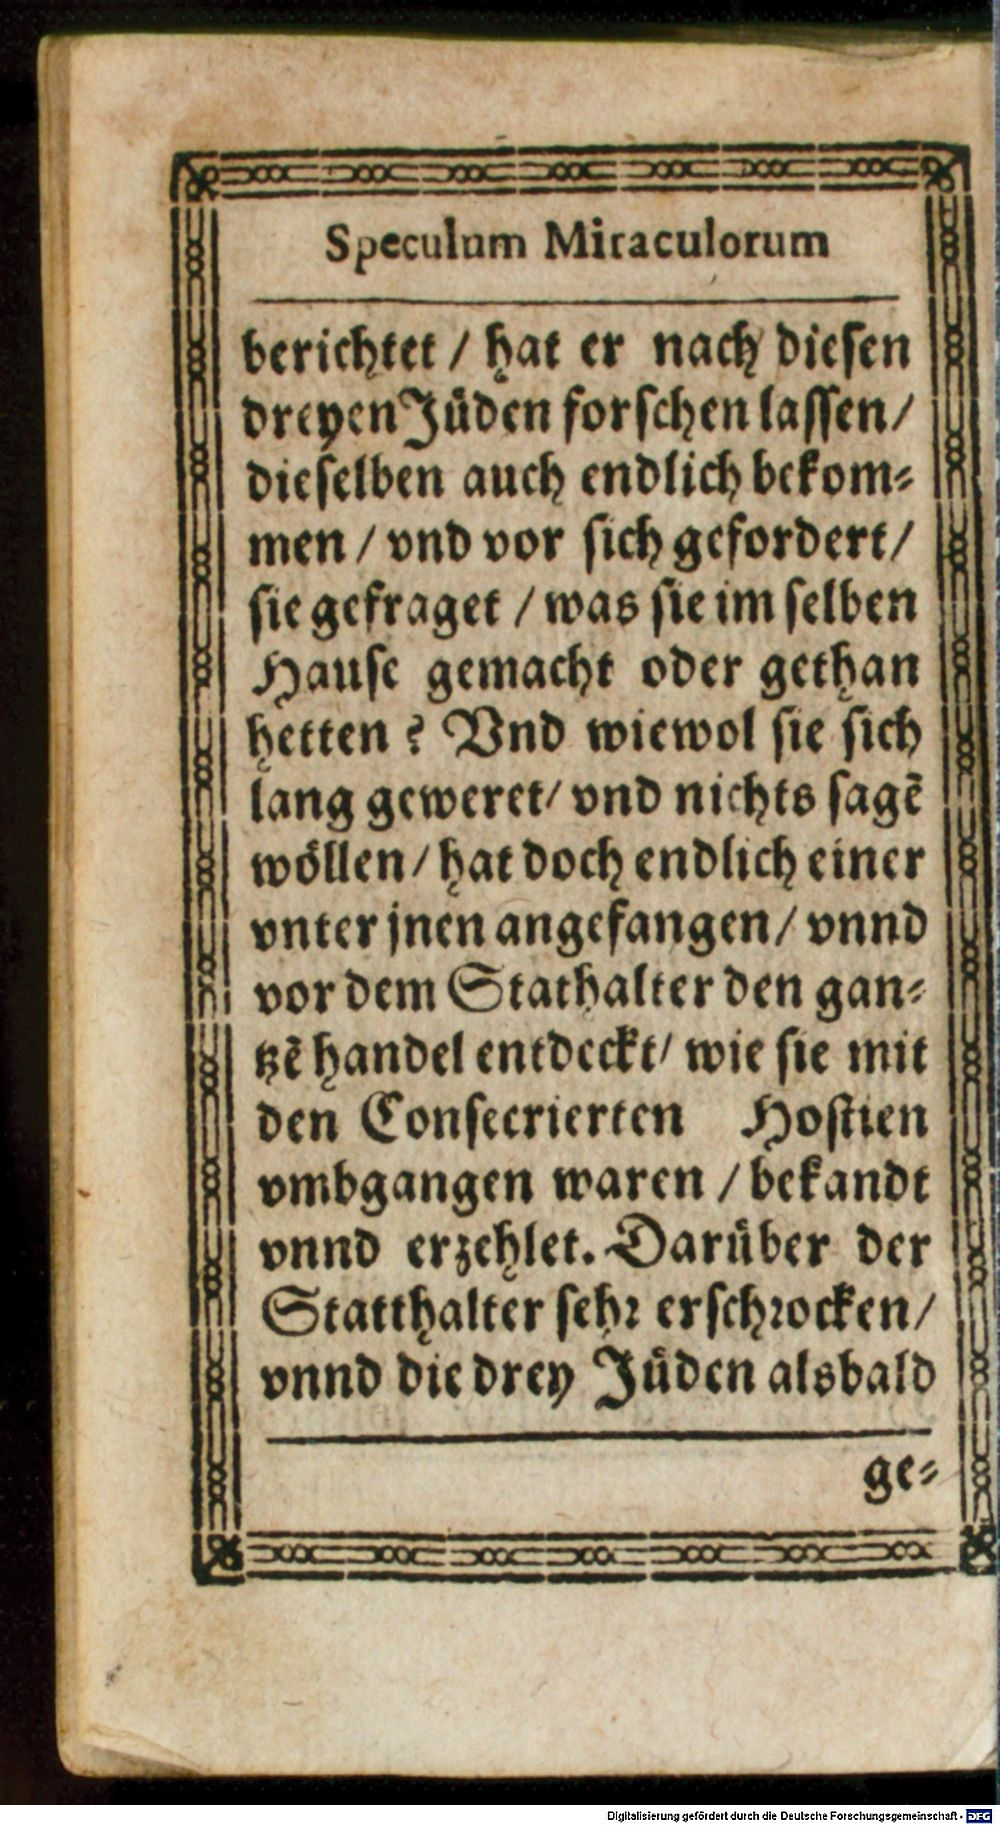 Speculum Miraculorum
berichtet / hat er nach diesen
dreyen Jüden forschen lassen /
dieselben auch endlich bekom⸗
men / vnd vor sich gefordert /
sie gefraget / was sie im selben
Hause gemacht oder gethan
hetten? Vnd wiewol sie sich
lang geweret / vnd nichts sagē
wöllen / hat doch endlich einer
vnter jnen angefangen / vnnd
vor dem Stathalter den gan⸗
tzē handel entdeckt / wie sie mit
den Consecrierten Hostien
vmbgangen waren / bekandt
vnnd erzehlet. Darüber der
Statthalter sehr erschrocken /
vnnd die drey Jüden alsbald
ge⸗
Digitalisierung gefördert durch die Deutsche Forschungsgemeinschaft - DFG